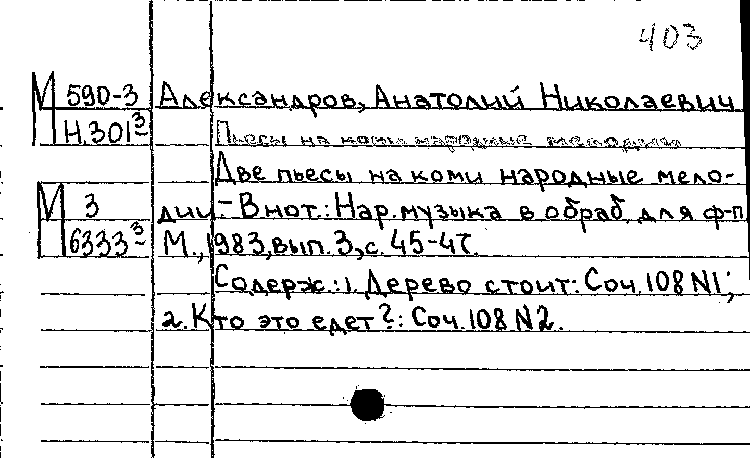 403
М 590-3 Александров, Анатолий Николаевич
Н.301³ Пьесы на коми народные мелодии
Две пьесы на коми народные мело-
М 3 дии. - В нот.: Нар. музыка в обраб. для ф-п.
6333³ М., 1983, вып. 3, с. 45-47.
Содерж.: 1. Дерево стоит: Соч. 108 N1;
2. Кто это едет?: Соч. 108 N2.